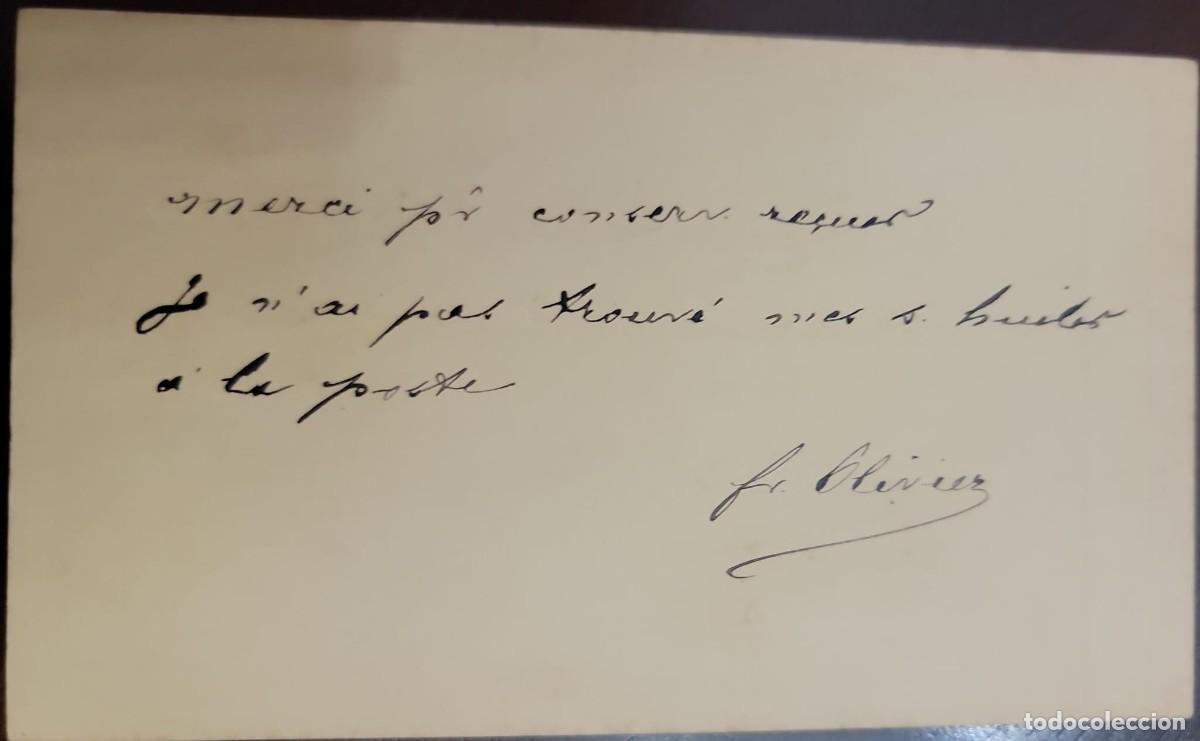 merci pr̂ conserv. reçues
Je n'ai pas trouvé mes s. huiles
à la poste
fr. Olivier
todocoleccion